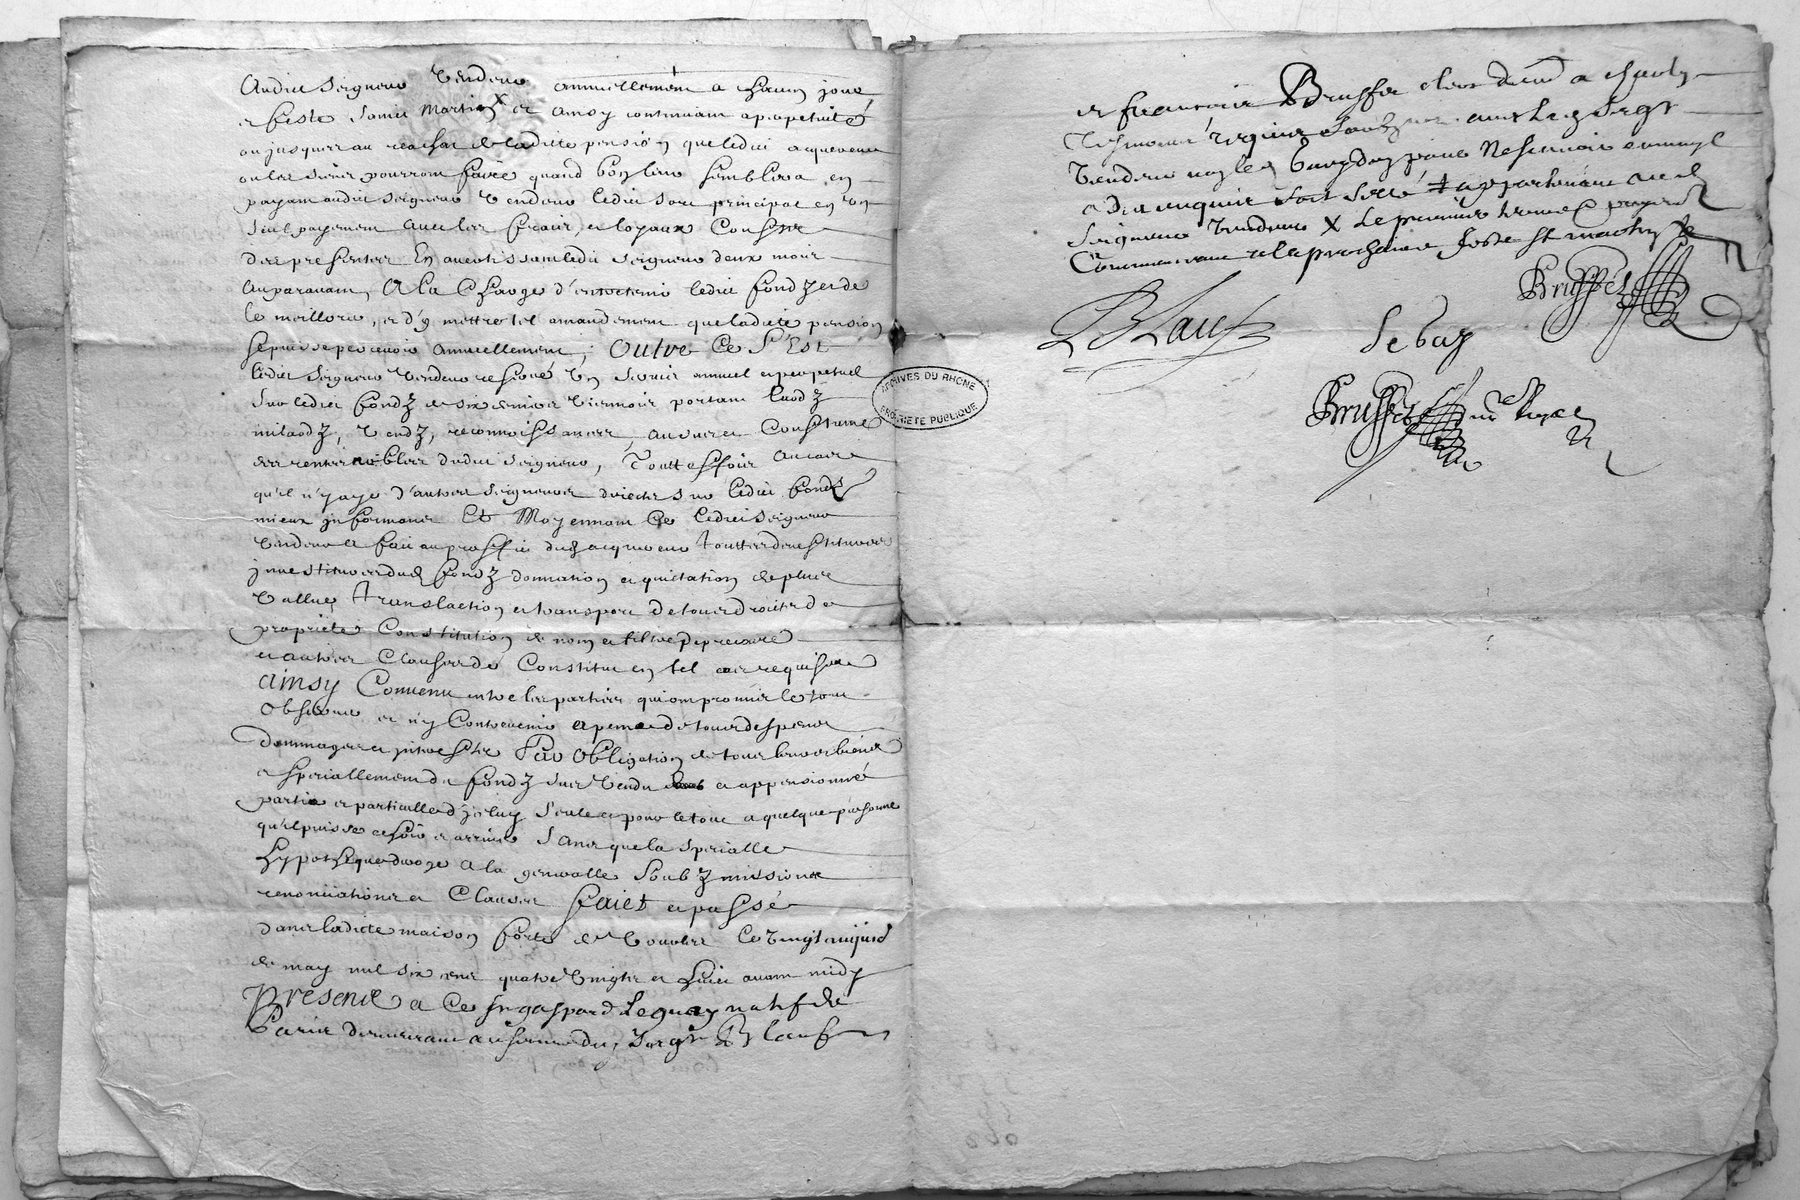 Audict Seigneur Vendeur annuellement a chacun jour
et feste Sainct Martin X et ainsy continuant a perpetuité
ou jusques au reachat de ladicte pension que ledict acquereur
ou les siens pourront faire quand bon leur semblera en
payant audict Seigneur Vendeur ledict sort principal en un
seul payement avec les fraix et loyaux Coustz
des presentes En advertissant ledict Seigneur deux mois
auparavant, A la Charge d'entretenir ledict fondz et de
le meillorer, et d'y mettre tel amandement que ladicte pension
se puisse percevoir annuellement, Oultre Ce S'Est
ledict Seigneur Vendeur reservé un servis annuel et perpetuel
sur ledict fondz de six deniers Viennois portant laodz
milaodz, Vendz, reconnoissances, autres et Coustumes
des rentes nobles dudict Seigneur, Touttesfois au cas
qu'il n'y aye d'autres Seigneurs directes sur ledict fondz
mieux informans Et Moyennant Ce ledict Seigneur
Vendeur a faict au proffit dud acquereur touttes devestitures
investitures dud fondz donnation et quictation de plus
Vallue, translaction et transport de tous droicts de
proprieté Constitution de nom et tiltre de precaire
et autres Clauses de Constitut en tel cas requises
Ainsy Convenu entre les parties qui ont promis le tout
observer et n'y Contrevenir a peine de tous despens
dommages et interestz Par Obligation de tous leurs biens
et speciallement du fondz sus Vendu et appensionné
partie et particulle d'iceluy seule et pour le tout a quelque personne
qu'il puisse eschoir et arriver Sans que la specialle
hypotheque desroge A la generalle Soubzmissions
renonciations et Clauses Faict et passé
dans ladicte maison forte de le vingt
de may mil six cens quatre Vingts et huict avant midy
Presentz a Ce Sr gaspard Leguay natif de
Paris demeurant au service dud Seigr Blauf
et francois Brusses clerc a
tesmoins requis Soubzsignes avec led Seigr
Vendeur non led pour ne scavoir
a dict enquis soit Sellé ‡ appartenant aud
Seigneur Vendeur X Le premier terme payera
Commencant a la prochaine feste St martin
Brussés
Blauf
Le Guay
Brussés Nre Royal
ARCHIVES DU RHONE
PROPRIETE PUBLIQUE